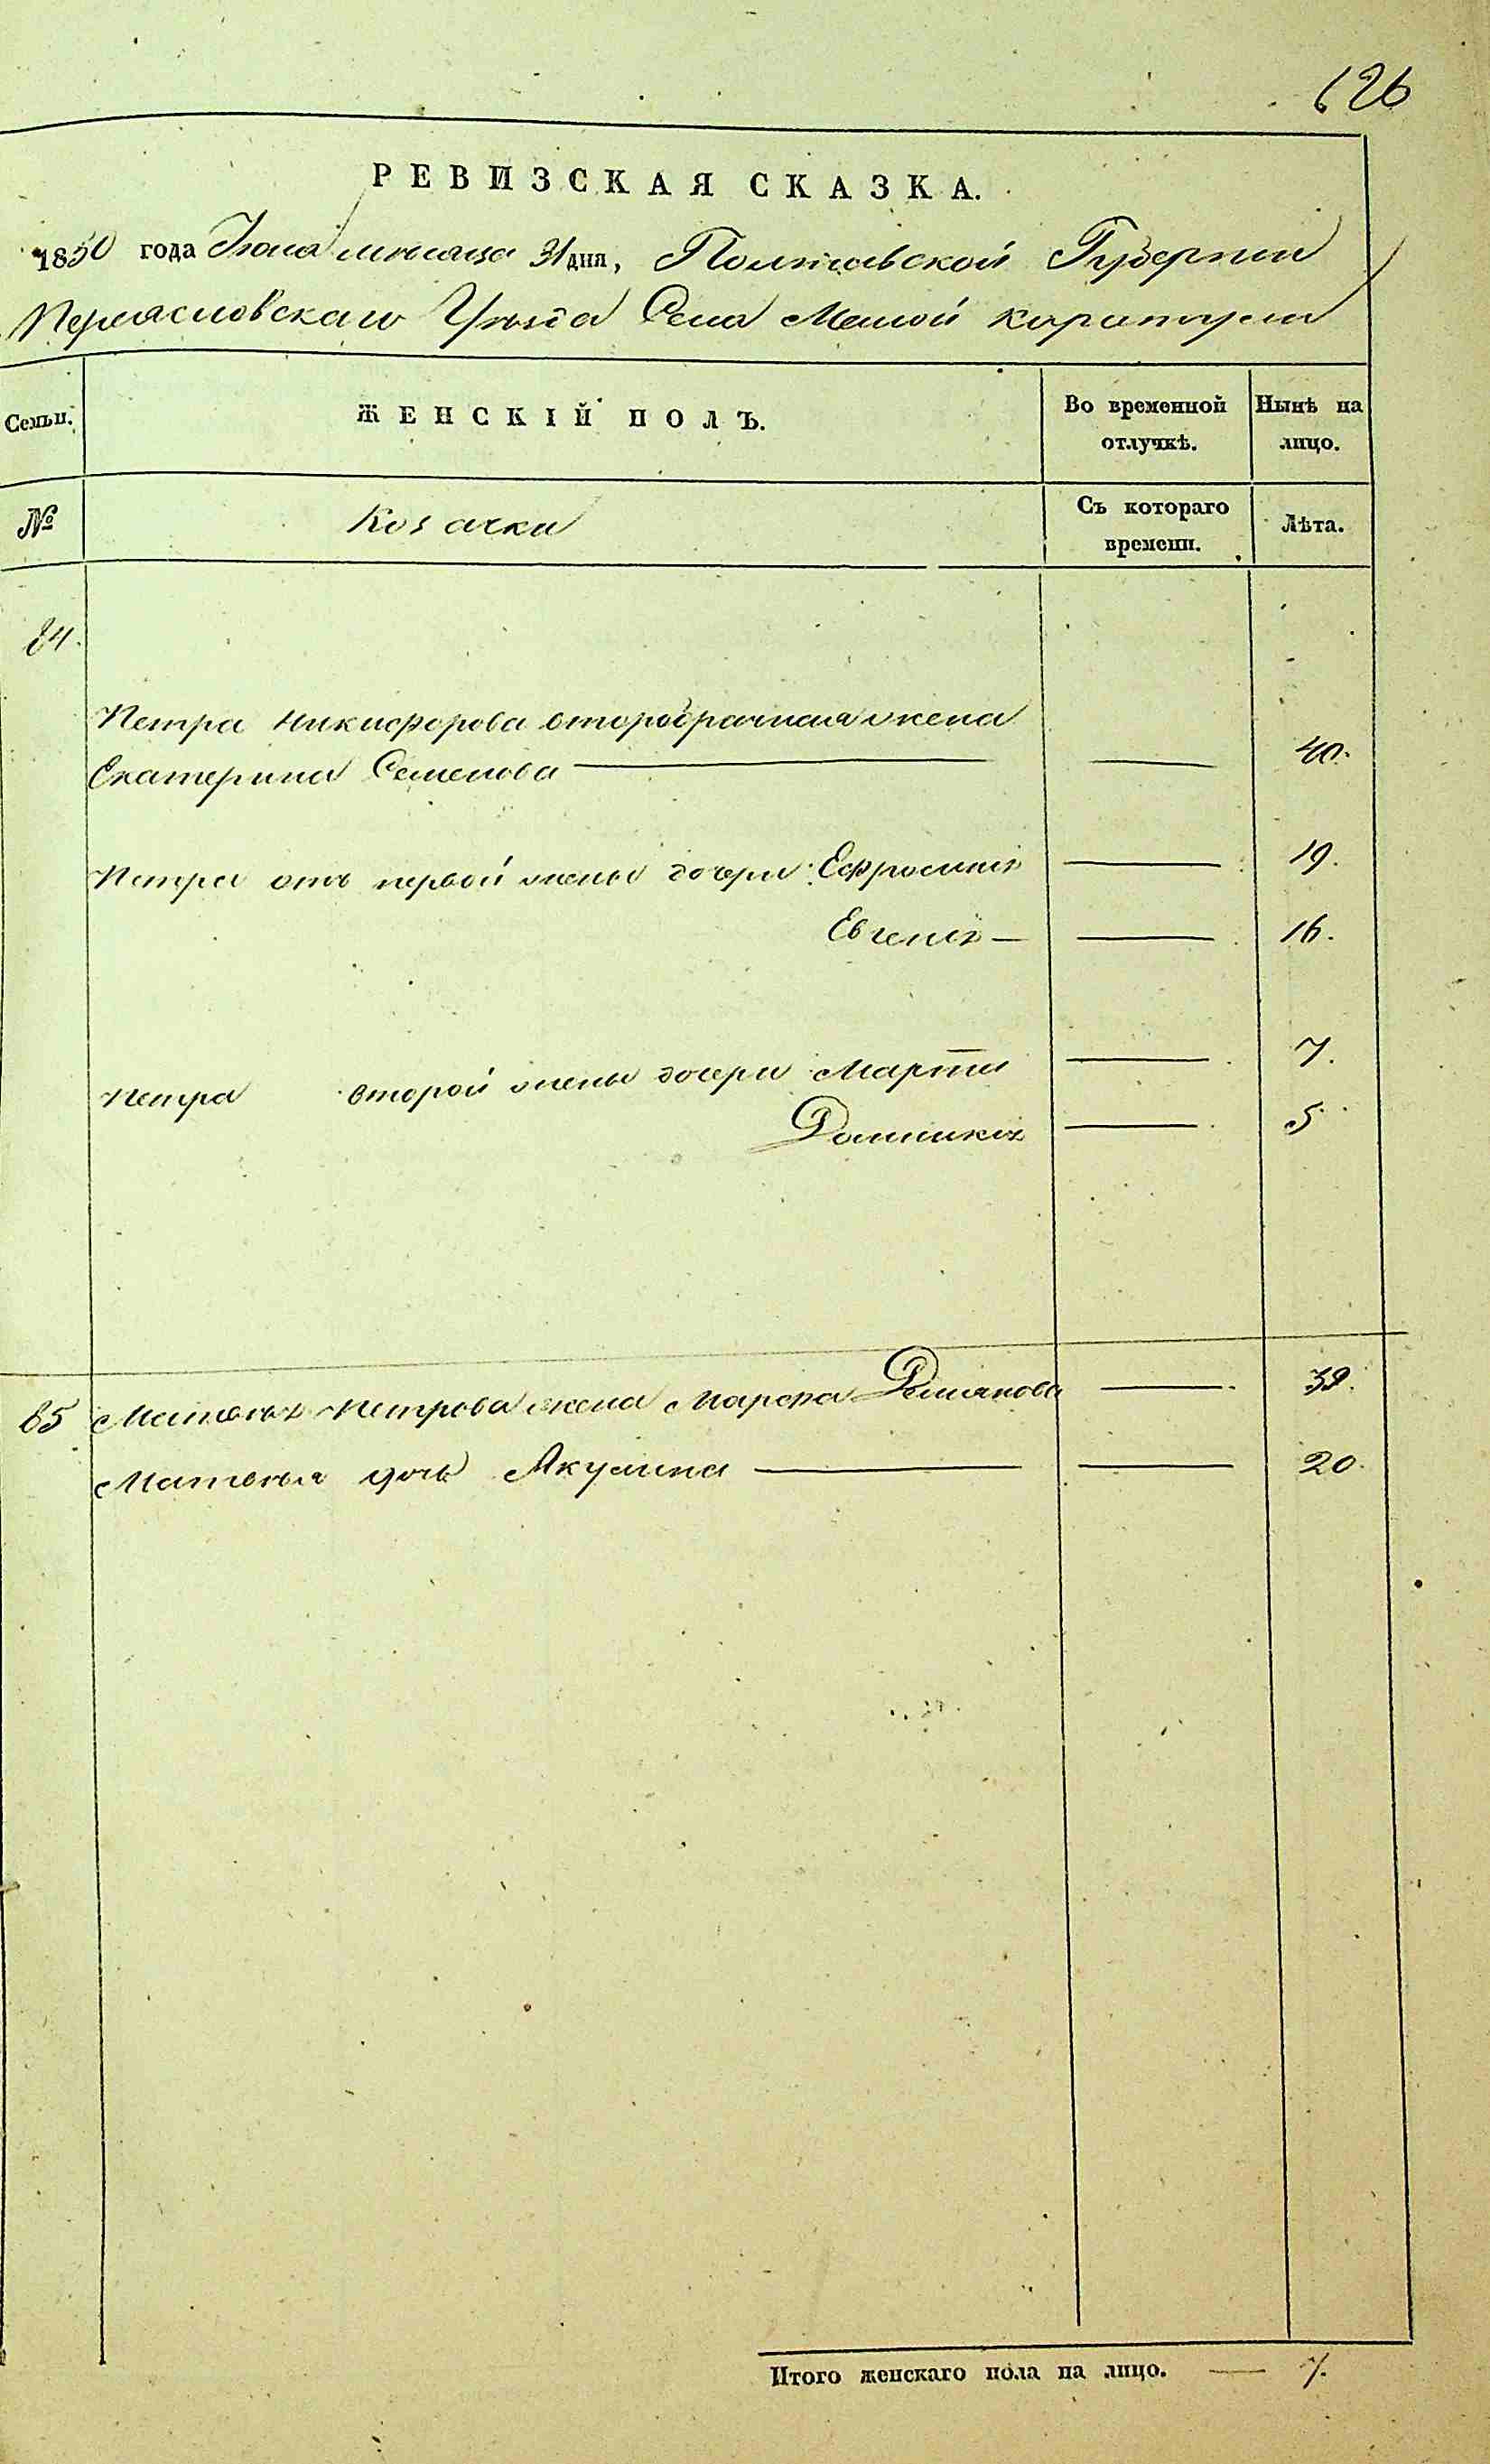 626
РЕВИЗСКАЯ СКАЗКА.
1850 года Июля месяца 31 дня, Полтавской Губернии
Переясловскаго Уезда Села Малой каратули
Семьи. ЖЕНСКІЙ ПОЛЪ. Во временной отлучкѣ. Нынѣ на лицо.
№ Козачки Съ котораго времени. Лѣта.
84.
Петра Никифорова второбрачная жена
Екатерина Семенова — — 40.
Петра отъ первой жены дочери: Ефросинія — 19.
Евгенія — — 16.
Петра второй жены дочери Марта — 7.
Домникія — 5
85 Матвея Петрова жена Марфа Демянова — 39.
Матвея дочь Акулина — — 20.
Итого женскаго пола на лицо. — 7.